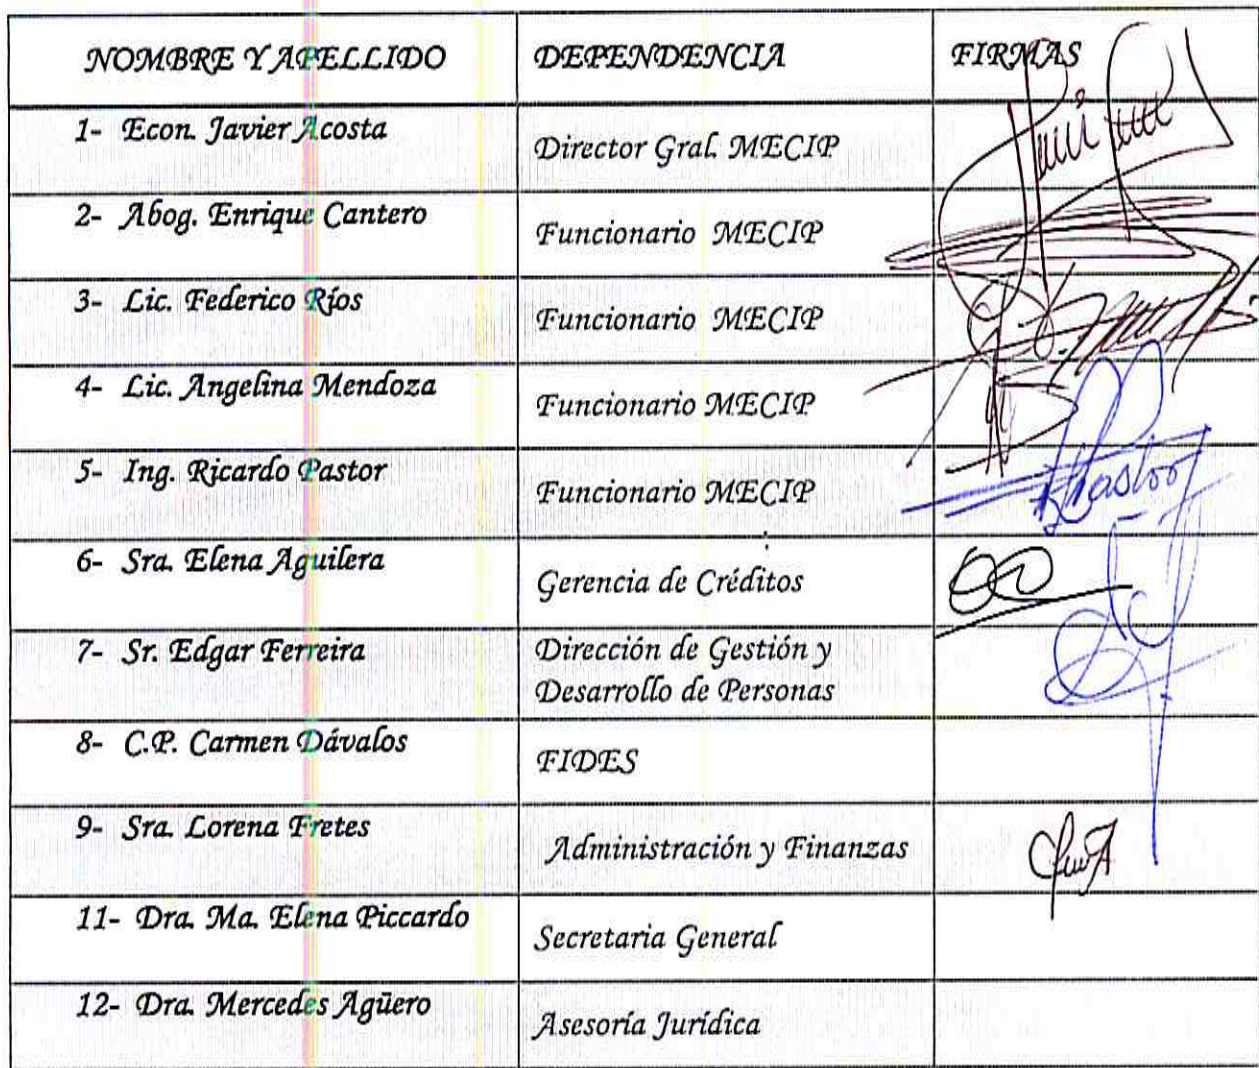 NOMBRE Y APELLIDO DEPENDENCIA FIRMAS
1- Econ. Javier Acosta Director Gral. MECIP
2- Abog. Enrique Cantero Funcionario MECIP
3- Lic. Federico Ríos Funcionario MECIP
4- Lic. Angelina Mendoza Funcionario MECIP
5- Ing. Ricardo Pastor Funcionario MECIP
RPastor
6- Sra. Elena Aguilera Gerencia de Créditos
7- Sr. Edgar Ferreira Dirección de Gestión y
Desarrollo de Personas
8- C.P. Carmen Dávalos FIDES
9- Sra. Lorena Fretes Administración y Finanzas
11- Dra. Ma. Elena Piccardo Secretaria General
12- Dra. Mercedes Agüero Asesoría Jurídica